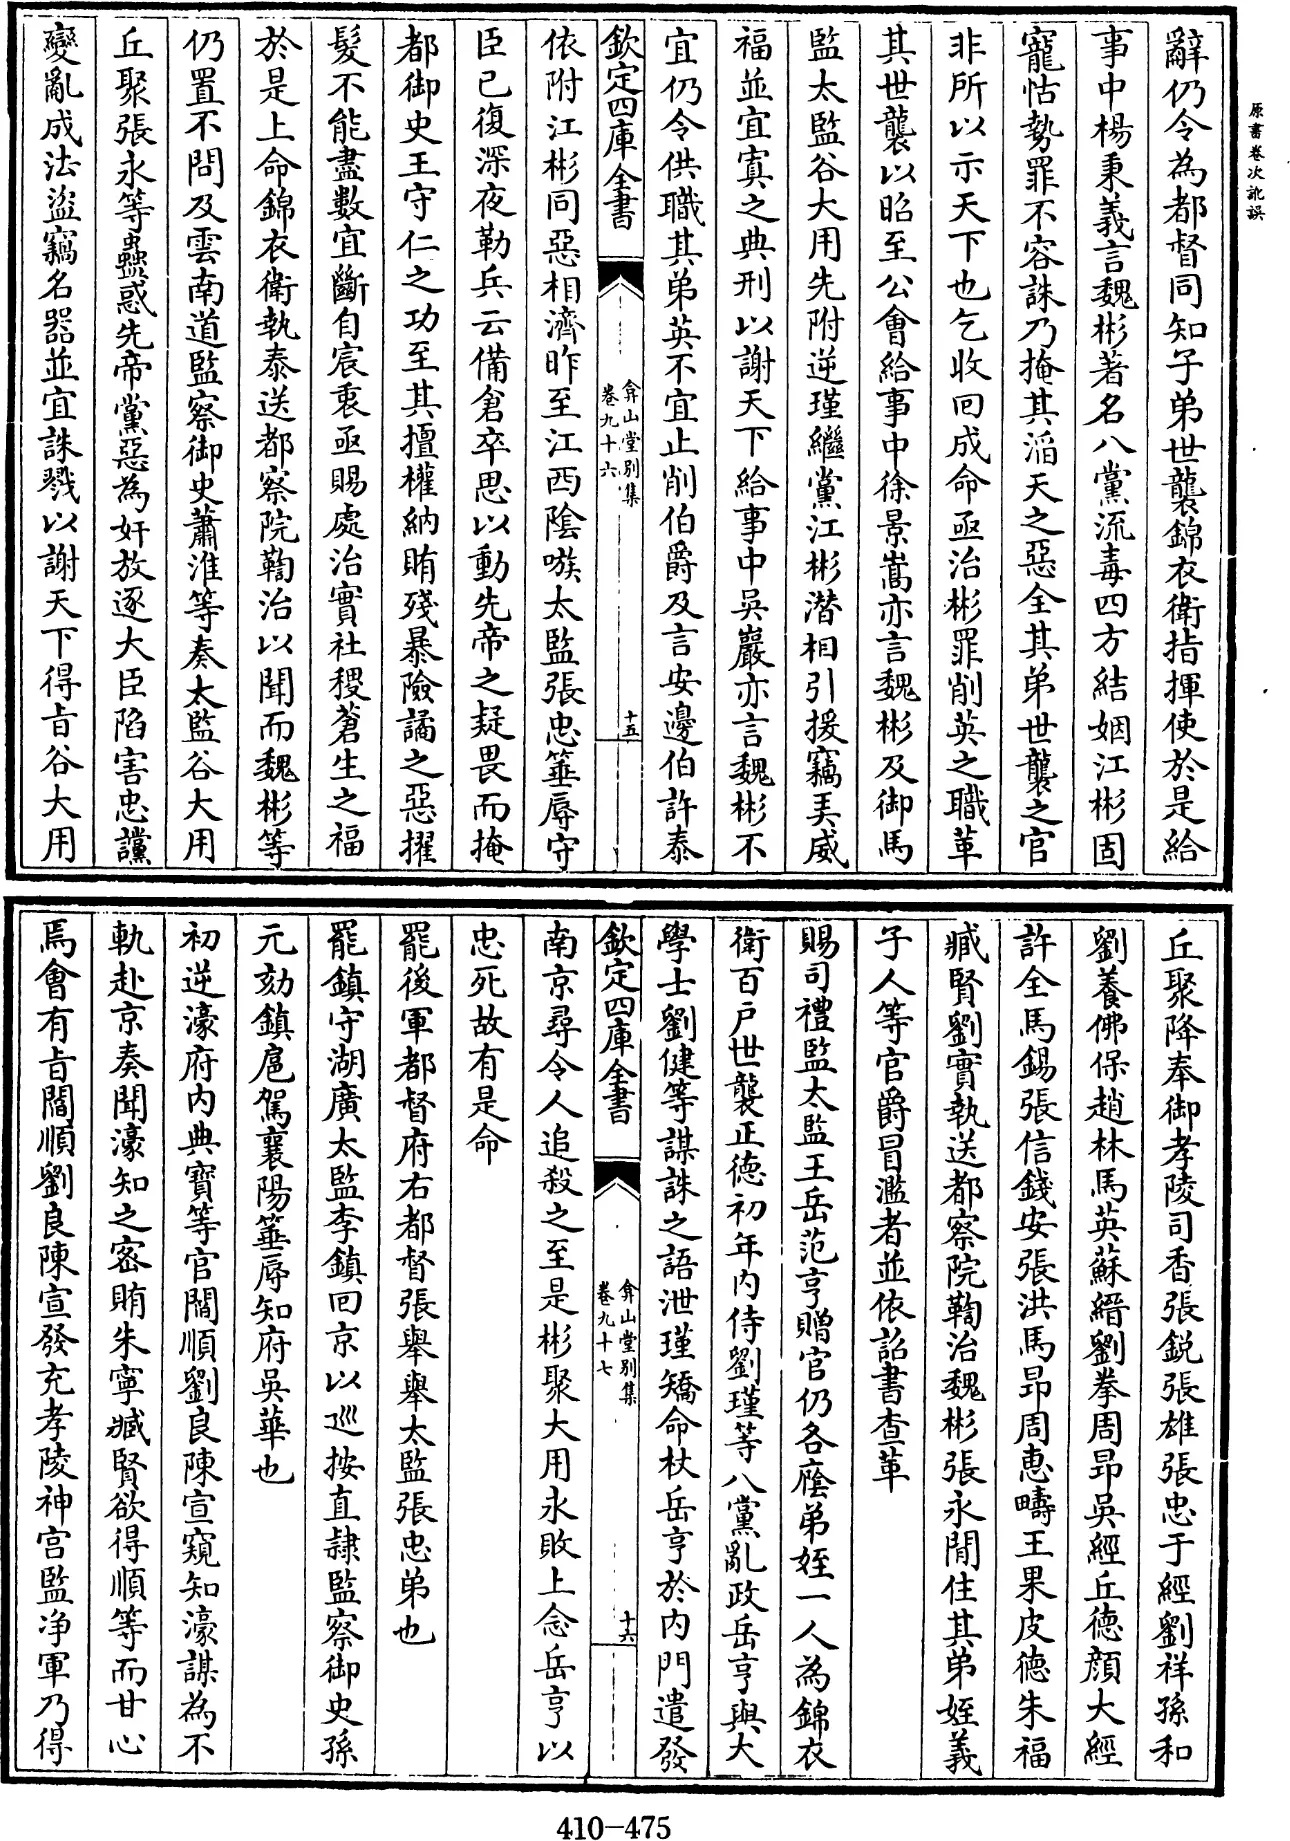 原書卷次訛誤
辭仍令為都督同知子弟世襲錦衣衛指揮使於是給
事中楊秉義言魏彬著名八黨流毒四方結姻江彬固
寵怙勢罪不容誅乃掩其滔天之惡全其弟世襲之官
非所以示天下也乞收回成命亟治彬罪削英之職革
其世襲以昭至公會給事中徐景嵩亦言魏彬及御馬
監太監谷大用先附逆瑾繼黨江彬潛相引援竊美威
福並宜寘之典刑以謝天下給事中吳巖亦言魏彬不
宜仍令供職其弟英不宜止削伯爵及言安邊伯許泰
欽定四庫全書
弇山堂別集
卷九十六
十五
依附江彬同惡相濟昨至江西陰嗾太監張忠箠辱守
臣已復深夜勒兵云備倉卒思以動先帝之疑畏而掩
都御史王守仁之功至其擅權納賄殘暴險譎之惡擢
髮不能盡數宜斷自宸衷亟賜處治實社稷蒼生之福
於是上命錦衣衛執泰送都察院鞫治以聞而魏彬等
仍置不問及雲南道監察御史蕭淮等奏太監谷大用
丘聚張永等蠱惑先帝黨惡為奸放逐大臣陷害忠讜
變亂成法盜竊名器並宜誅戮以謝天下得旨谷大用
丘聚降奉御孝陵司香張銳張雄張忠于經劉祥孫和
劉養佛保趙林馬英蘇縉劉拳周昂吳經丘德顏大經
許全馬錫張信錢安張洪馬昂周惠疇王果皮德朱福
臧賢劉實執送都察院鞫治魏彬張永閒住其弟姪義
子人等官爵冒濫者並依詔書查革
賜司禮監太監王岳范亨贈官仍各廕弟姪一人為錦衣
衛百戶世襲正德初年內侍劉瑾等八黨亂政岳亨與大
學士劉健等謀誅之語泄瑾矯命杖岳亨於內門遣發
欽定四庫全書
弇山堂別集
卷九十七
十六
南京尋令人追殺之至是彬聚大用永敗上念岳亨以
忠死故有是命
罷後軍都督府右都督張舉舉太監張忠弟也
罷鎮守湖廣太監李鎮回京以巡按直隸監察御史孫
元劾鎮扈駕襄陽箠辱知府吳華也
初逆濠府內典寶等官閻順劉良陳宣窺知濠謀為不
軌赴京奏聞濠知之密賄朱寧臧賢欲得順等而甘心
焉會有旨閻順劉良陳宣發充孝陵神宮監凈軍乃得
410-475